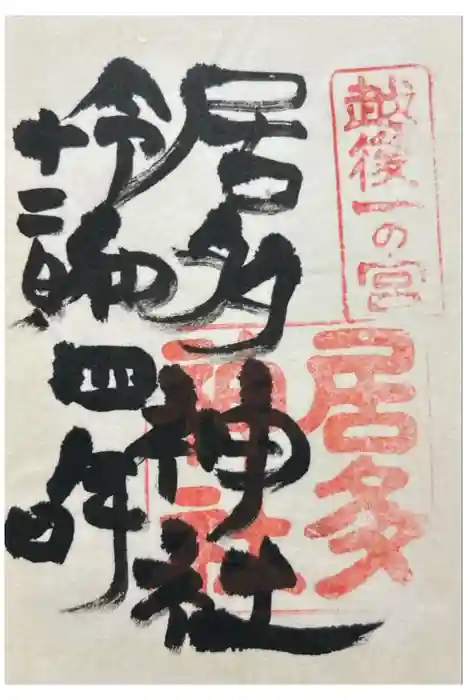 越後一の宮
居多
神社
居多神社
令和四年
十二月 日